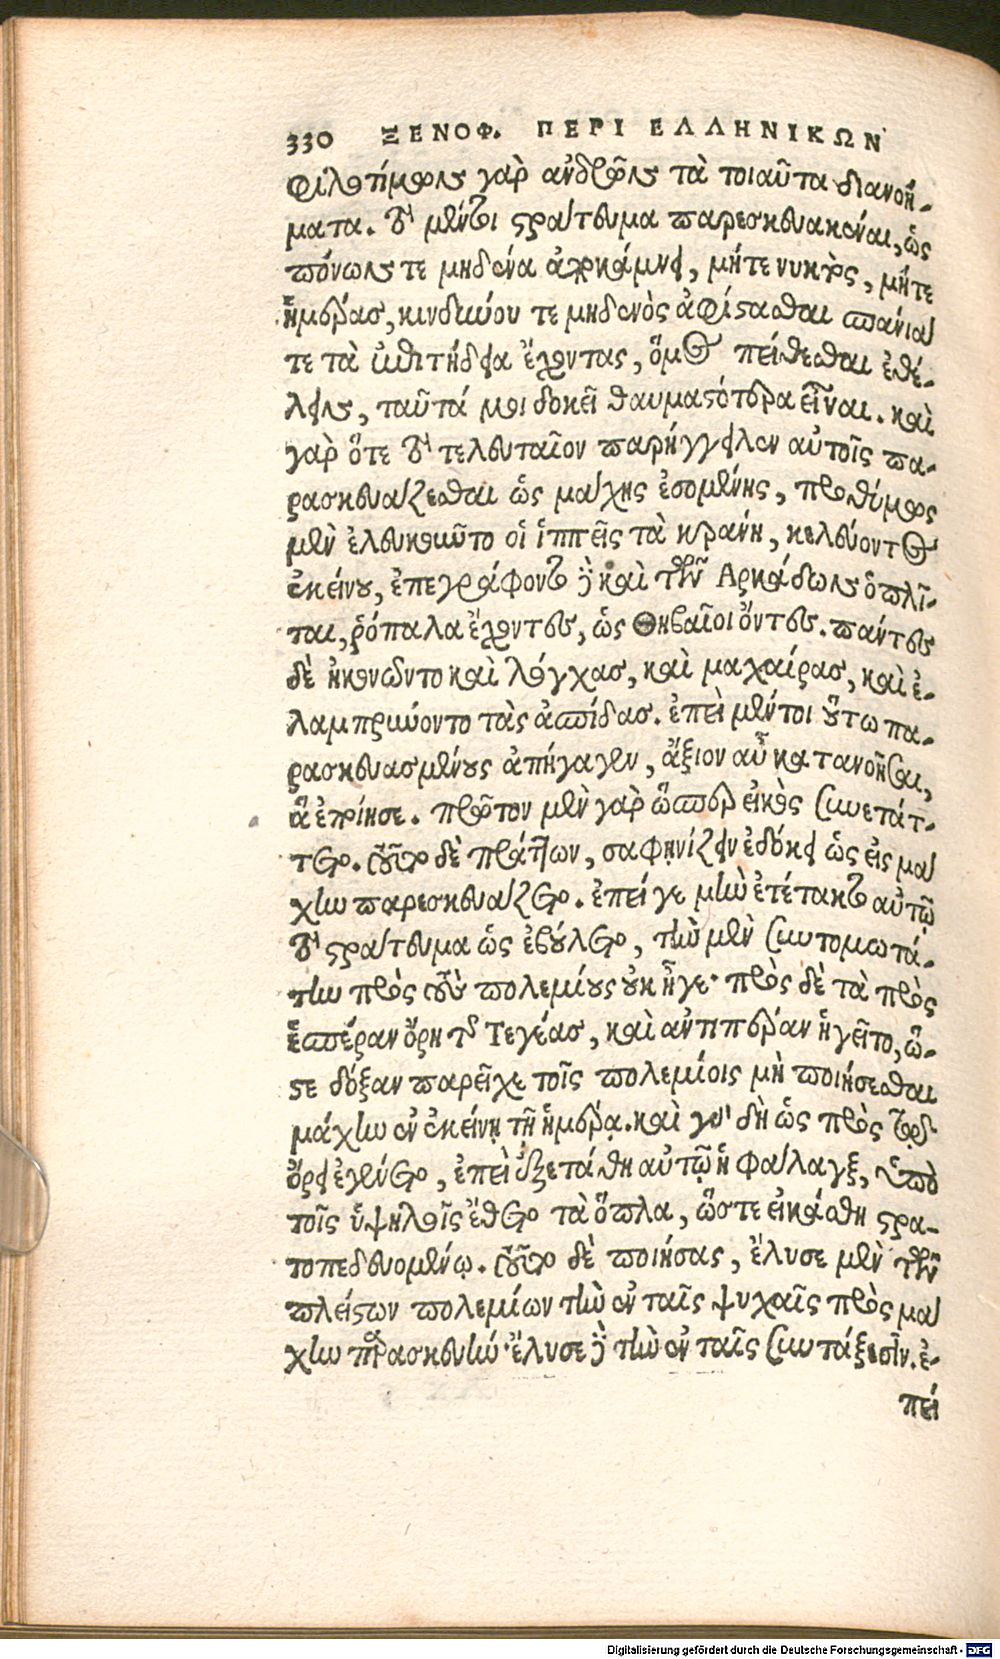 330 ΞΕΝΟΦ. ΠΕΡΙ ΕΛΛΗΝΙΚΩΝ
φιλοτίμων γὰρ ἀνδρῶν τὰ τοιαῦτα διανοή-
ματα. τὸ μέντοι στράτευμα παρεσκευακέναι, ὡς
πόνων τε μηδένα ἀποκάμνειν, μήτε νυκτὸς, μήτε
ἡμέρας, κινδύνου τε μηδενὸς ἀφίστασθαι σπάνιά
τε τὰ ἐπιτήδεια ἔχοντας, ὅμως πείθεσθαι ἐθέ-
λειν, ταῦτά μοι δοκεῖ θαυμαστότερα εἶναι. καὶ
γὰρ ὅτε τὸ τελευταῖον παρήγγειλεν αὐτοῖς πα-
ρασκευάζεσθαι ὡς μάχης ἐσομένης, προθύμως
μὲν ἐλευκοῦντο οἱ ἱππεῖς τὰ κράνη, κελεύοντος
ἐκείνου, ἐπεγράφοντο δὲ καὶ τῶν Αρκάδων ὁπλῖ-
ται, ῥόπαλα ἔχοντες, ὡς Θηβαῖοι ὄντες. πάντες
δὲ ἠκονῶντο καὶ λόγχας, καὶ μαχαίρας, καὶ ἐ-
λαμπρύνοντο τὰς ἀσπίδας. ἐπεὶ μέντοι οὕτω πα-
ρασκευασμένους ἀπήγαγεν, ἄξιον αὖ κατανοῆσαι,
ἃ ἐποίησε. πρῶτον μὲν γὰρ ὥσπερ εἰκὸς συνετάτ-
τετο. τοῦτο δὲ πράττων, σαφηνίζειν ἐδόκει ὡς εἰς μά
χην παρεσκευάζετο. ἐπεί γε μὴν ἐτέτακτο αὐτῷ
τὸ στράτευμα ὡς ἐβούλετο, τὴν μὲν συντομωτά-
την πρὸς τοὺς πολεμίους οὐκ ἦγε· πρὸς δὲ τὰ πρὸς
ἑσπέραν ὄρη τῆς Τεγέας, καὶ ἀντιπέραν ἡγεῖτο, ὥ-
στε δόξαν παρεῖχε τοῖς πολεμίοις μὴ ποιήσεσθαι
μάχην ἐν ἐκείνῃ τῇ ἡμέρᾳ. καὶ γὰρ δὴ ὡς πρὸς τῷ
ὄρει ἐγένετο, ἐπεὶ ἐξετάθη αὐτῷ ἡ φάλαγξ, ὑπὸ
τοῖς ὑψηλοῖς ἔθετο τὰ ὅπλα, ὥστε εἰκάσθη στρα-
τοπεδευομένῳ. τοῦτο δὲ ποιήσας, ἔλυσε μὲν τῶν
πλείστων πολεμίων τὴν ἐν ταῖς ψυχαῖς πρὸς μά
χην παρασκευήν· ἔλυσε δὲ τὴν ἐν ταῖς συντάξεσιν. ἐ-
πεί
Digitalisierung gefördert durch die Deutsche Forschungsgemeinschaft - DFG